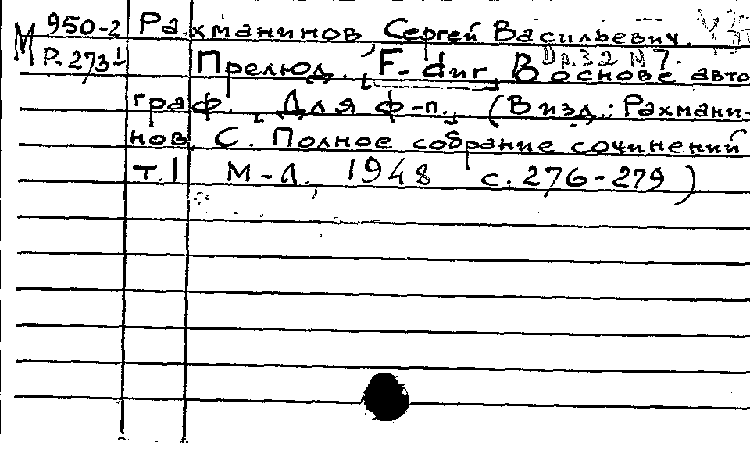 М 950-2 Рахманинов, Сергей Васильевич.
Р-273 Прелюд. F-dur. Ор. 32 № 7. В основе авто
граф. [Для ф-п.] (В изд.: Рахмани-
нов, С. Полное собрание сочинений
т. I М-Л., 1948 с. 276-279)